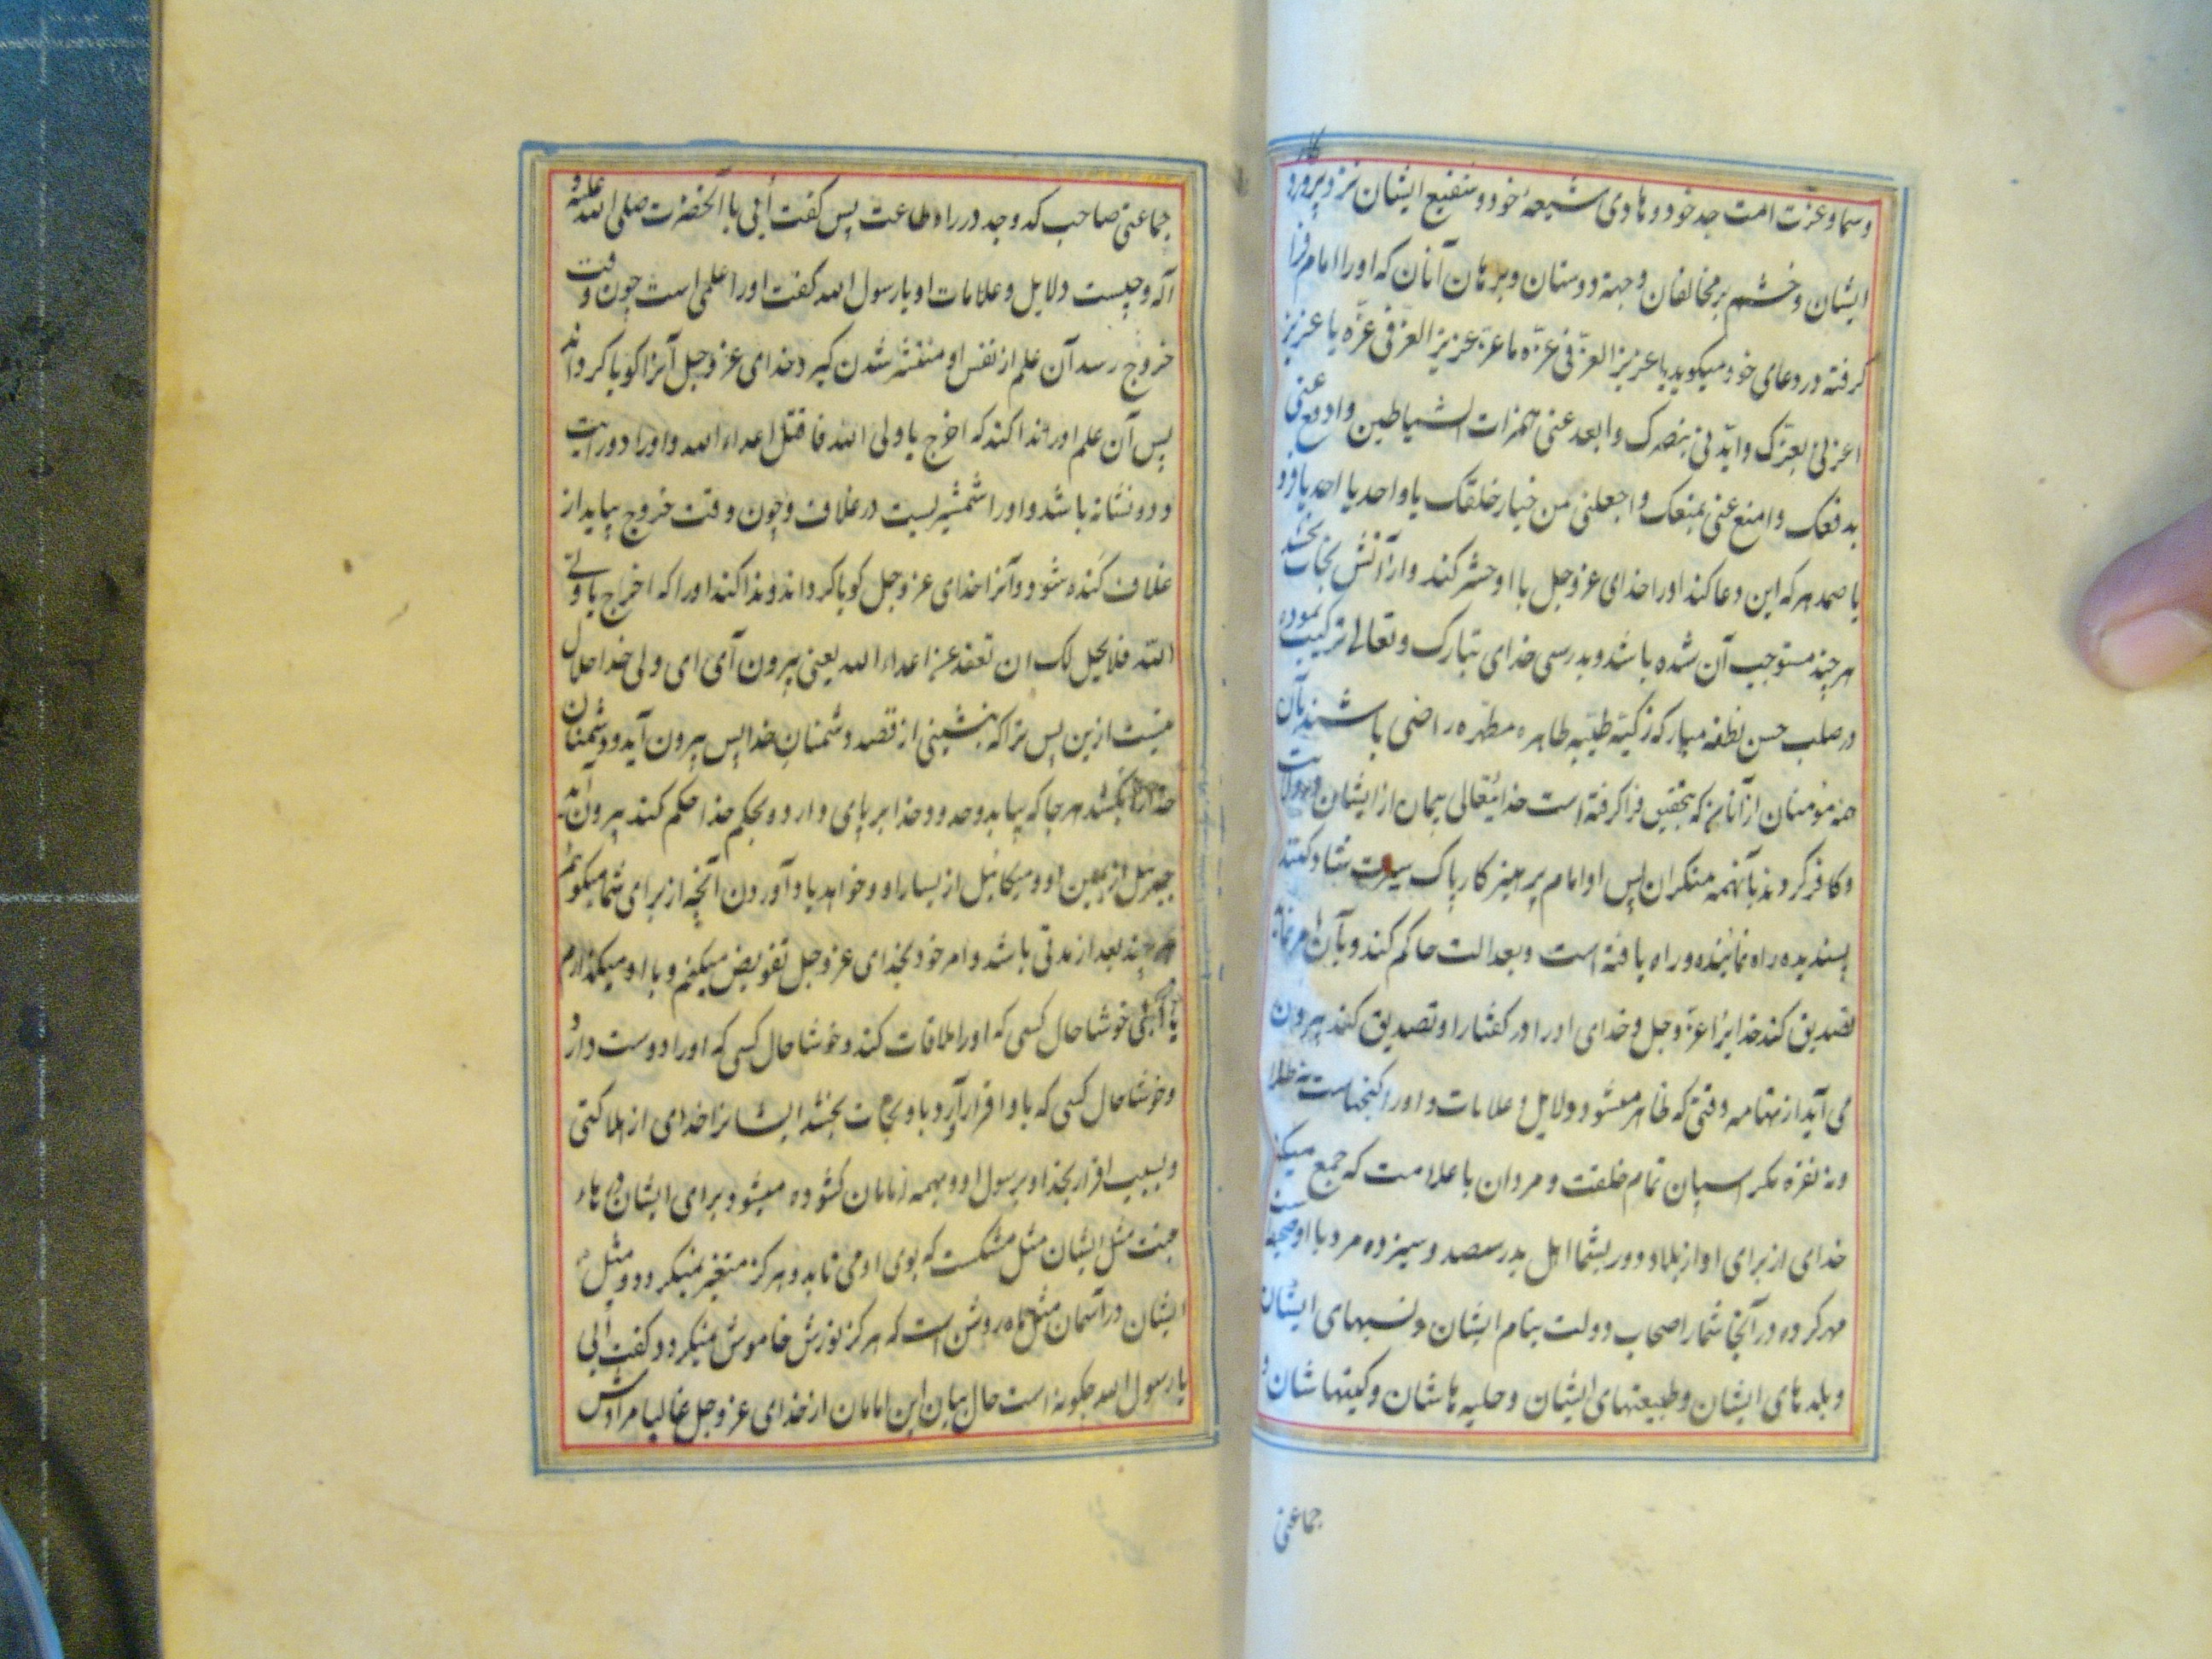 وسما وعزت امت جد خود و هادی شیعهٔ خود و شفیع ایشان نزد پرورد
کار
ایشان و خشم بر مخالفان و جهة دوستان و برهان آنان که او را امام فرا
کرفته در دعای خود میکوید یا عزیز العزّ فی عزّه ما عزّ عزیز العزّ فی عزّه یا عزیز
اعزنی بعزّک وایّدنی بنصرک وابعد عنی همزات الشیاطین وادفع عنی
بدفعک وامنع عنی بمنعک واجعلنی من خیار خلقک یا واحد یا احد یا فرد
یا صمد هر که این دعا کند او را خدای عز وجل با او حشر کند و از آتش نجات بخشد
هر چند مستوجب آن شده باشد و بدرستی خدای تبارک وتعالی ترکیب نموده
در صلب حسن نطفه مبارکه زکیّه طیّبه طاهره مطهّره راضی باشند بآن
همه مومنان از آنانی که بتحقیق فرا کرفته است خدایتعالی پیمان از ایشان در ولایت
و کافر کردند بآنهمه منکران پس او امام پرهیزکار پاک سیرت شاد کننده
پسندیده راه نماینده و راه یافته است و بعدالت حاکم کند و بآن امر نماید
تصدیق کند خدایرا عزّ وجل و خدای او را در کفتار او تصدیق کند بیرون
می آید از تهامه وقتی که ظاهر میشود دلایل و علامات و او را کنجهاست نه طلا
ونه نقره مکر اسپان تمام خلقت و مردان با علامت که جمع میکند
خدای از برای او از بلاد دور بشمار اهل بدر سیصد و سیزده مرد با او صحیفه
مهر کرده در آنجا شمار اصحاب دولت بنام ایشان و نسبهای ایشان
و بلدهای ایشان و طبیعتهای ایشان و حلیه هاشان و کنیتهاشان و
جماعتی
جماعتی صاحب کد وجد در راه طاعت پس کفت اُبَی با آنحضرت صلی الله علیه و
آله و چیست دلایل و علامات او یا رسول الله کفت او را علمی است چون وقت
خروج رسد آن علم از نفس او منتشر شدن کیرد و خدای عز وجل آنرا کویا کرداند
پس آن علم او را ندا کند که اخرج یا ولی الله فاقتل اعداء الله و او را دو رایت
و دو نشانه باشد و او را شمشیریست در غلاف و چون وقت خروج بیاید از
غلاف کنده شود و آنرا خدای عز وجل کویا کرداند و ندا کند او را که اخرج یا ولی
الله فلا یحل لک ان تقعد عن اعداء الله یعنی بیرون آی ای ولی خدا حلال
نیست ازین پس ترا که بنشینی از قصد دشمنان خدا پس بیرون آید و دشمنان
خدا را بکشد هر جا که بیابد و حدود خدا بر پای دارد و بحکم خدا حکم کند بیرون آید
جبرئیل از یمین او و میکائیل از یسار او و خواهد یاد آوردن آنچه از برای شما میکویم
هر چند بعد از مدتی باشد و امر خود بخدای عز وجل تفویض میکنم و با او میکذارم
یا اُبَی خوشا حال کسی که او را ملاقات کند و خوشا حال کسی که او را دوست دارد
و خوشا حال کسی که باو اقرار آرد و باو نجات بخشد ایشانرا خدای از هلاکتی
و بسبب اقرار بخدا و برسول او و بهمه امامان کشوده میشود برای ایشان درهاء
جنت مثل ایشان مثل مشکست که بوی او می تابد و هرکز متغیر نمیکردد و مثل
ایشان در آسمان مثل ماه روشن است که هرکز نورش خاموش نمیکردد کفت اُبی
یا رسول الله چکونه است حال بیان این امامان از خدای عز وجل غالبا مرادش